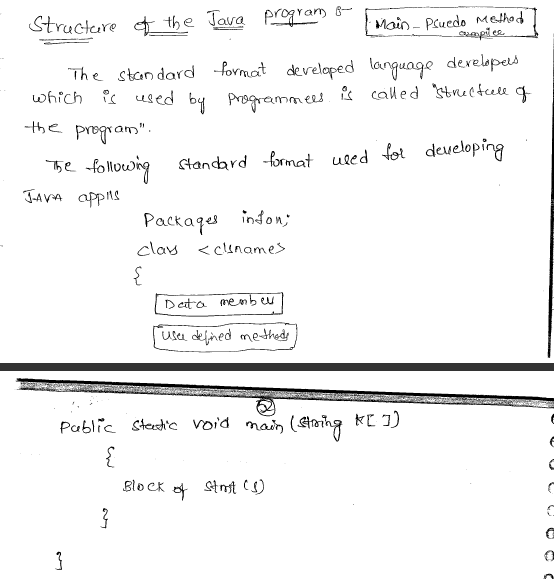 Structure of the Java program :-
Main - Psuedo Method
compiler
The standard format developed language developers
which is used by programmers is called "structure of
the program".
The following standard format used for developing
JAVA appns
Packages infon;
class <clsname>
{
Data member
User defined methods
52
Public static void main (string k[ ])
{
Block of stmt (s)
}
}